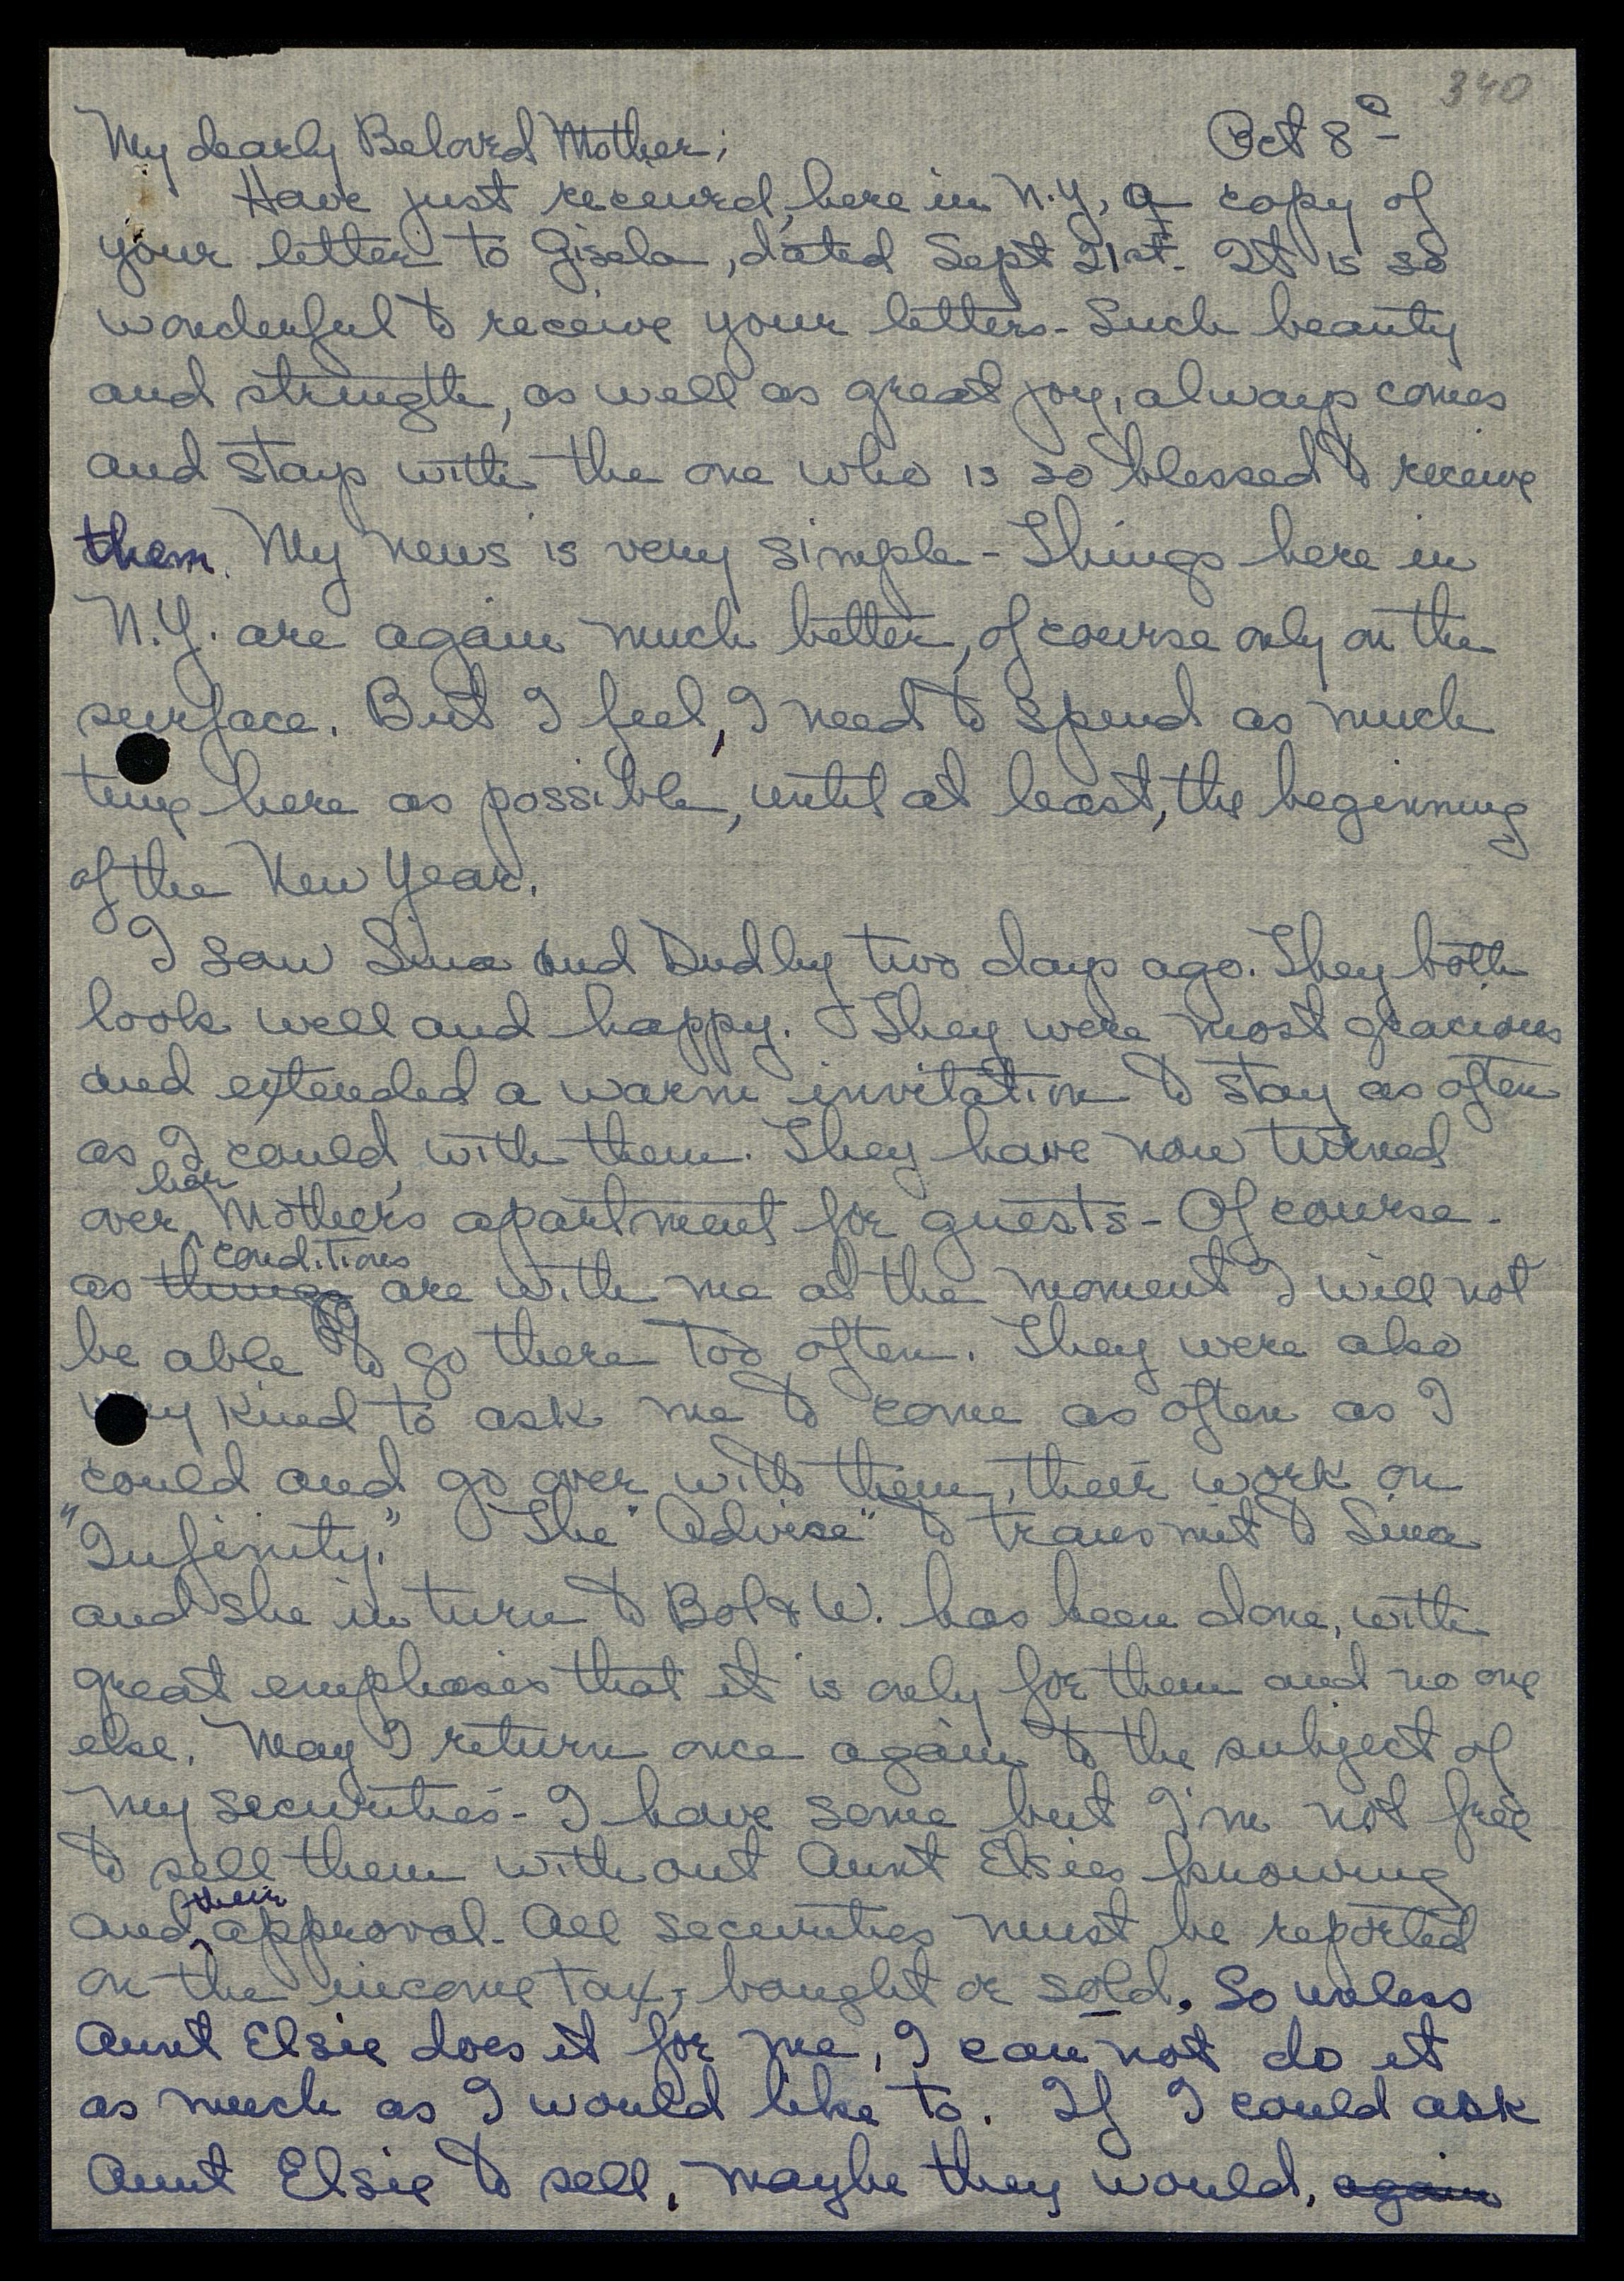 340
My dearly Beloved Mother; Oct 8
Have just received, here in N.Y, a copy of
your letter to Gisela, dated Sept 21st. It is so
wonderful to receive your letters - Such beauty
and strength, as well as great joy, always comes
and stays with the one who is so blessed to receive
them. My news is very simple - Things here in
N.Y. are again much better, of course only on the
surface. But I feel, I need to spend as much
time here as possible, until at least, the beginning
of the New Year.
I saw Sina and Dudley two days ago. They both
look well and happy. They were most gracious
and extended a warm invitation to stay as often
as I could, with them. They have now turned
over her Mother's apartment for guests - Of course -
as things conditions are with me at the moment I will not
be able to go there too often. They were also
very kind to ask me to come as often as I
could and go over with them, their work on
"Infinity." The "Advise" to transmit to Sina
and she in turn to Bol & W. has been done, with
great emphases that it is only for them and no one
else. May I return once again to the subject of
my securities - I have some but I'm not free
to sell them without Aunt Elsies knowing
and their approval - All securities must be reported
on the income tax, bought or sold. So unless
Aunt Elsie does it for me, I can not do it
as much as I would like to. If I could ask
Aunt Elsie to sell, maybe they would, again